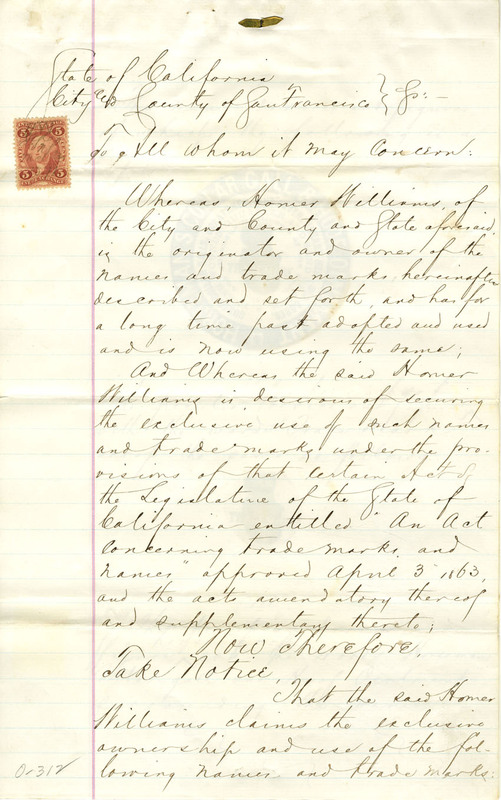 State of California
City and County of San Francisco } Ss:-
To All whom it may Concern:
Whereas, Homer Williams, of
the City and County and State aforesaid,
is the originator and owner of the
names and trade marks hereinafter
described and set forth, and has for
a long time past adopted and used
and is now using the same;
And Whereas the said Homer
Williams is desirous of securing
the exclusive use of such names
and trade marks, under the pro-
visions of that certain Act of
the Legislature of the State of
California entitled "An Act
concerning trade marks and
names" approved April 3 1863,
and the acts amendatory thereof
and supplementary thereto;
Now Therefore,
Take Notice,
That the said Homer
Williams claims the exclusive
ownership and use of the fol-
lowing names and trade marks:
5 5
0-312